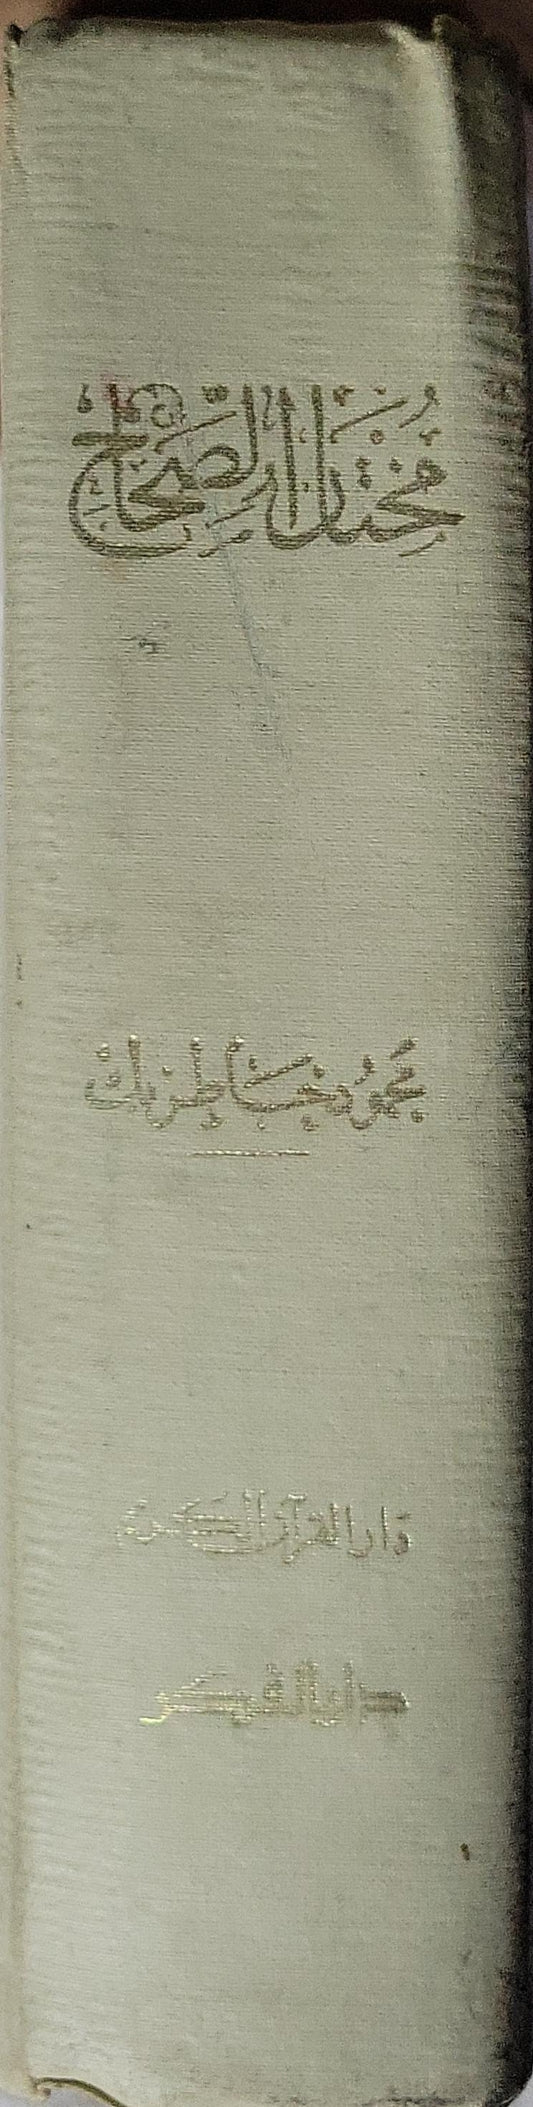 مُختار الصِّحَاح
محمود خاطر بك
دار القرآن الكريم
دار الفكر